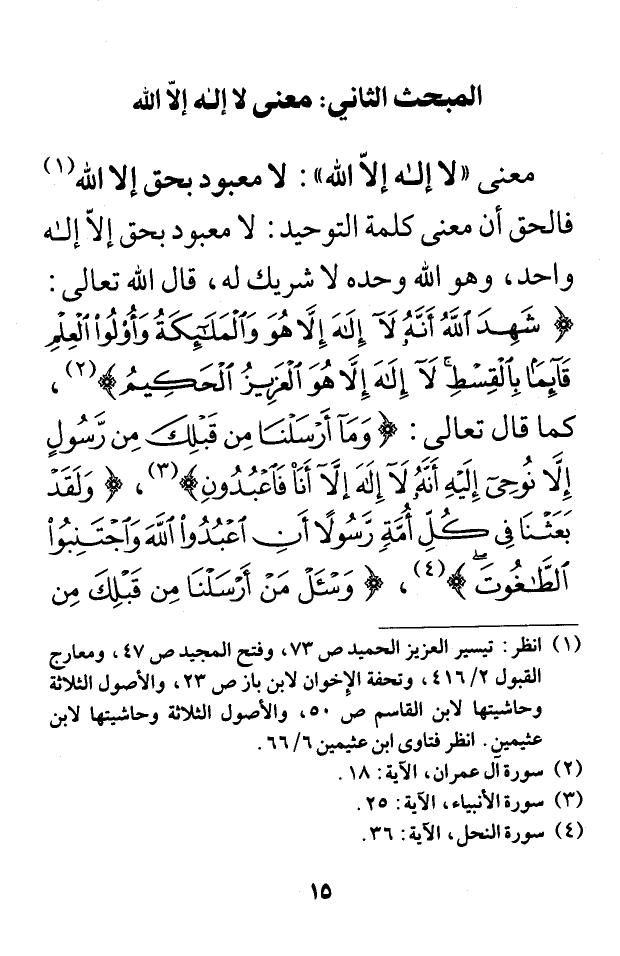 المبحث الثاني: معنى لا إلـٰه إلاّ الله
معنى «لا إلـٰه إلاّ الله»: لا معبود بحق إلا الله(١)
فالحق أن معنى كلمة التوحيد: لا معبود بحق إلاّ إلـٰه
واحد، وهو الله وحده لا شريك له، قال الله تعالى:
﴿ شَهِدَ ٱللَّهُ أَنَّهُۥ لَآ إِلَٰهَ إِلَّا هُوَ وَٱلْمَلَٰٓئِكَةُ وَأُو۟لُوا۟ ٱلْعِلْمِ
قَآئِمًۢا بِٱلْقِسْطِ ۚ لَآ إِلَٰهَ إِلَّا هُوَ ٱلْعَزِيزُ ٱلْحَكِيمُ ﴾(٢)،
كما قال تعالى: ﴿ وَمَآ أَرْسَلْنَا مِن قَبْلِكَ مِن رَّسُولٍ
إِلَّا نُوحِىٓ إِلَيْهِ أَنَّهُۥ لَآ إِلَٰهَ إِلَّآ أَنَا۠ فَٱعْبُدُونِ ﴾(٣)، ﴿ وَلَقَدْ
بَعَثْنَا فِى كُلِّ أُمَّةٍ رَّسُولًا أَنِ ٱعْبُدُوا۟ ٱللَّهَ وَٱجْتَنِبُوا۟
ٱلطَّٰغُوتَ ۖ ﴾(٤)، ﴿ وَسْـَٔلْ مَنْ أَرْسَلْنَا مِن قَبْلِكَ مِن
(١) انظر: تيسير العزيز الحميد ص ٧٣، وفتح المجيد ص ٤٧، ومعارج
القبول ٢/ ٤١٦، وتحفة الإخوان لابن باز ص ٢٣، والأصول الثلاثة
وحاشيتها لابن القاسم ص ٥٠، والأصول الثلاثة وحاشيتها لابن
عثيمين. انظر فتاوى ابن عثيمين ٦/ ٦٦.
(٢) سورة آل عمران، الآية: ١٨.
(٣) سورة الأنبياء، الآية: ٢٥.
(٤) سورة النحل، الآية: ٣٦.
١٥